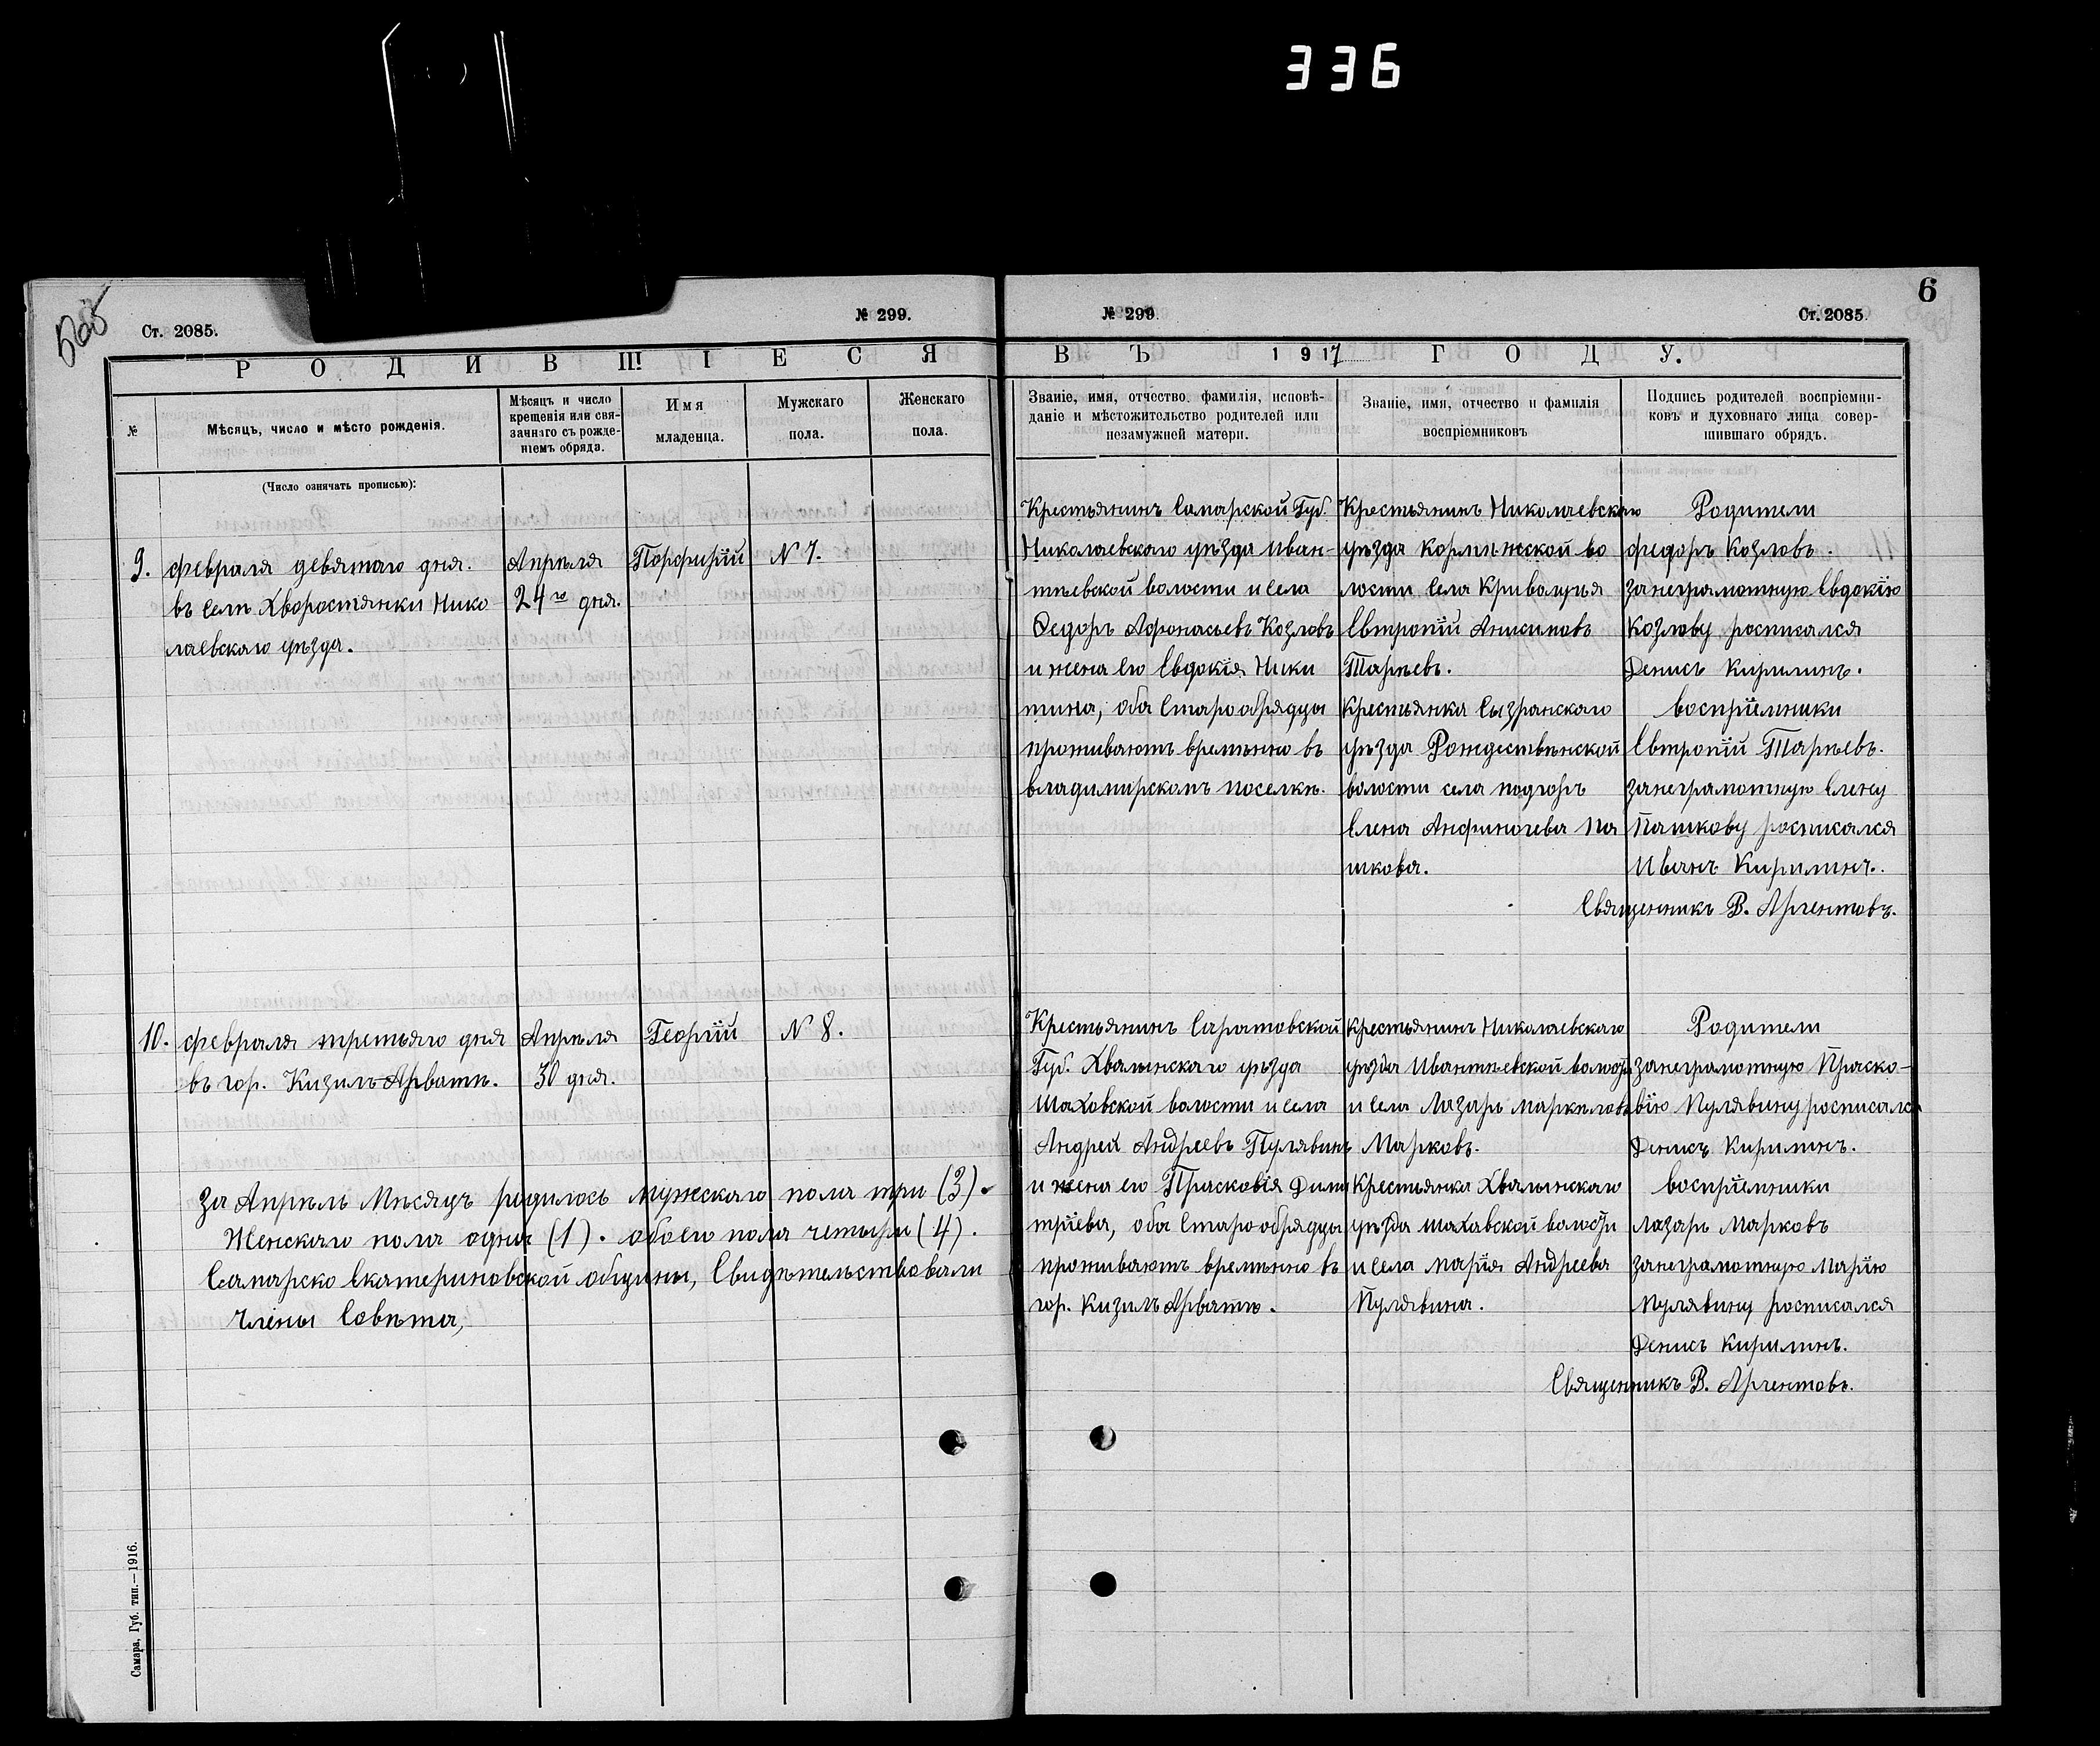 336
6
Ст. 2085.
№ 299.
№ 299.
Ст. 2085.
РОДИВШІЕСЯ
ВЪ 1917 ГОДУ.
№
Мѣсяцъ, число и мѣсто рожденія.
Мѣсяцъ и число
крещенія или свя-
заннаго съ рожде-
ніемъ обряда.
Имя
младенца.
Мужскаго
пола.
Женскаго
пола.
Званіе, имя, отчество, фамилія, исповѣ-
даніе и мѣстожительство родителей или
незамужней матери.
Званіе, имя, отчество и фамилія
воспріемниковъ
Подпись родителей воспріемни-
ковъ и духовнаго лица совер-
шившаго обрядъ.
(Число означать прописью):
9.
февраля девятаго дня.
въ селѣ Хворостянки Нико
лаевскаго уѣзда.
Апрѣля
24го дня.
Порфирій
N 7.
Крестьянинъ Самарской Губ.
Николаевскаго уѣзда Иван-
тѣевской волости и села
Федоръ Афонасьевъ Козловъ
и жена его Евдокія Ники
тина, оба Старообрядцы
проживаютъ времѣнно въ
владимирскомъ поселкѣ.
Крестьянинъ Николаевскаго
уѣзда Кормѣжской во
лости села Криволучья
Евтропій Анисимовъ
Тарѣевъ.
Крестьянка Сызранскаго
уѣзда Рождествѣнской
волости села подгоръ
Елена Анфиногева Па
шкова.
Родители
федоръ Козловъ.
занеграмотную Евдокію
Козлову росписался
Денисъ Кирилинъ.
воспріемники
Евтропій Тарѣевъ.
занеграмотную Елену
Пашкову росписался
Иванъ Кирилинъ.
Священникъ В. Аргентовъ.
10.
февраля третьяго дня
въ гор. Кизилъ-Арватѣ.
Апрѣля
30 дня.
Георгій
N 8.
Крестьянинъ Саратовской
Губ. Хвалынскаго уѣзда
Шаховской волости и села
Андрей Андреевъ Пулявинъ
и жена его Прасковія Дими
тріева, оба Старообрядцы
проживаютъ времѣнно въ
гор. Кизилъ Арватѣ.
Крестьянинъ Николаевскаго
уѣзда Ивантѣевской волости
и села Лазарь Маркѣловъ
Марковъ.
Крестьянка Хвалынскаго
уѣзда шаховской волости
и села Марія Андреева
Пулявина.
Родители
занеграмотную Праско-
вію Пулявину росписался
Денисъ Кирилинъ.
воспріемники
Лазарь Марковъ
занеграмотную Марію
Пулявину росписался
Денисъ Кирилинъ.
Священникъ В. Аргентовъ.
За Апрѣль Мѣсяцъ родилось мужескаго пола три (3).
Женскаго пола одна (1). обоего пола четыри (4).
Самарско Екатериновской общины, Свидѣтельствовали
Члены Совѣта,
Самара, Губ. тип.—1916.